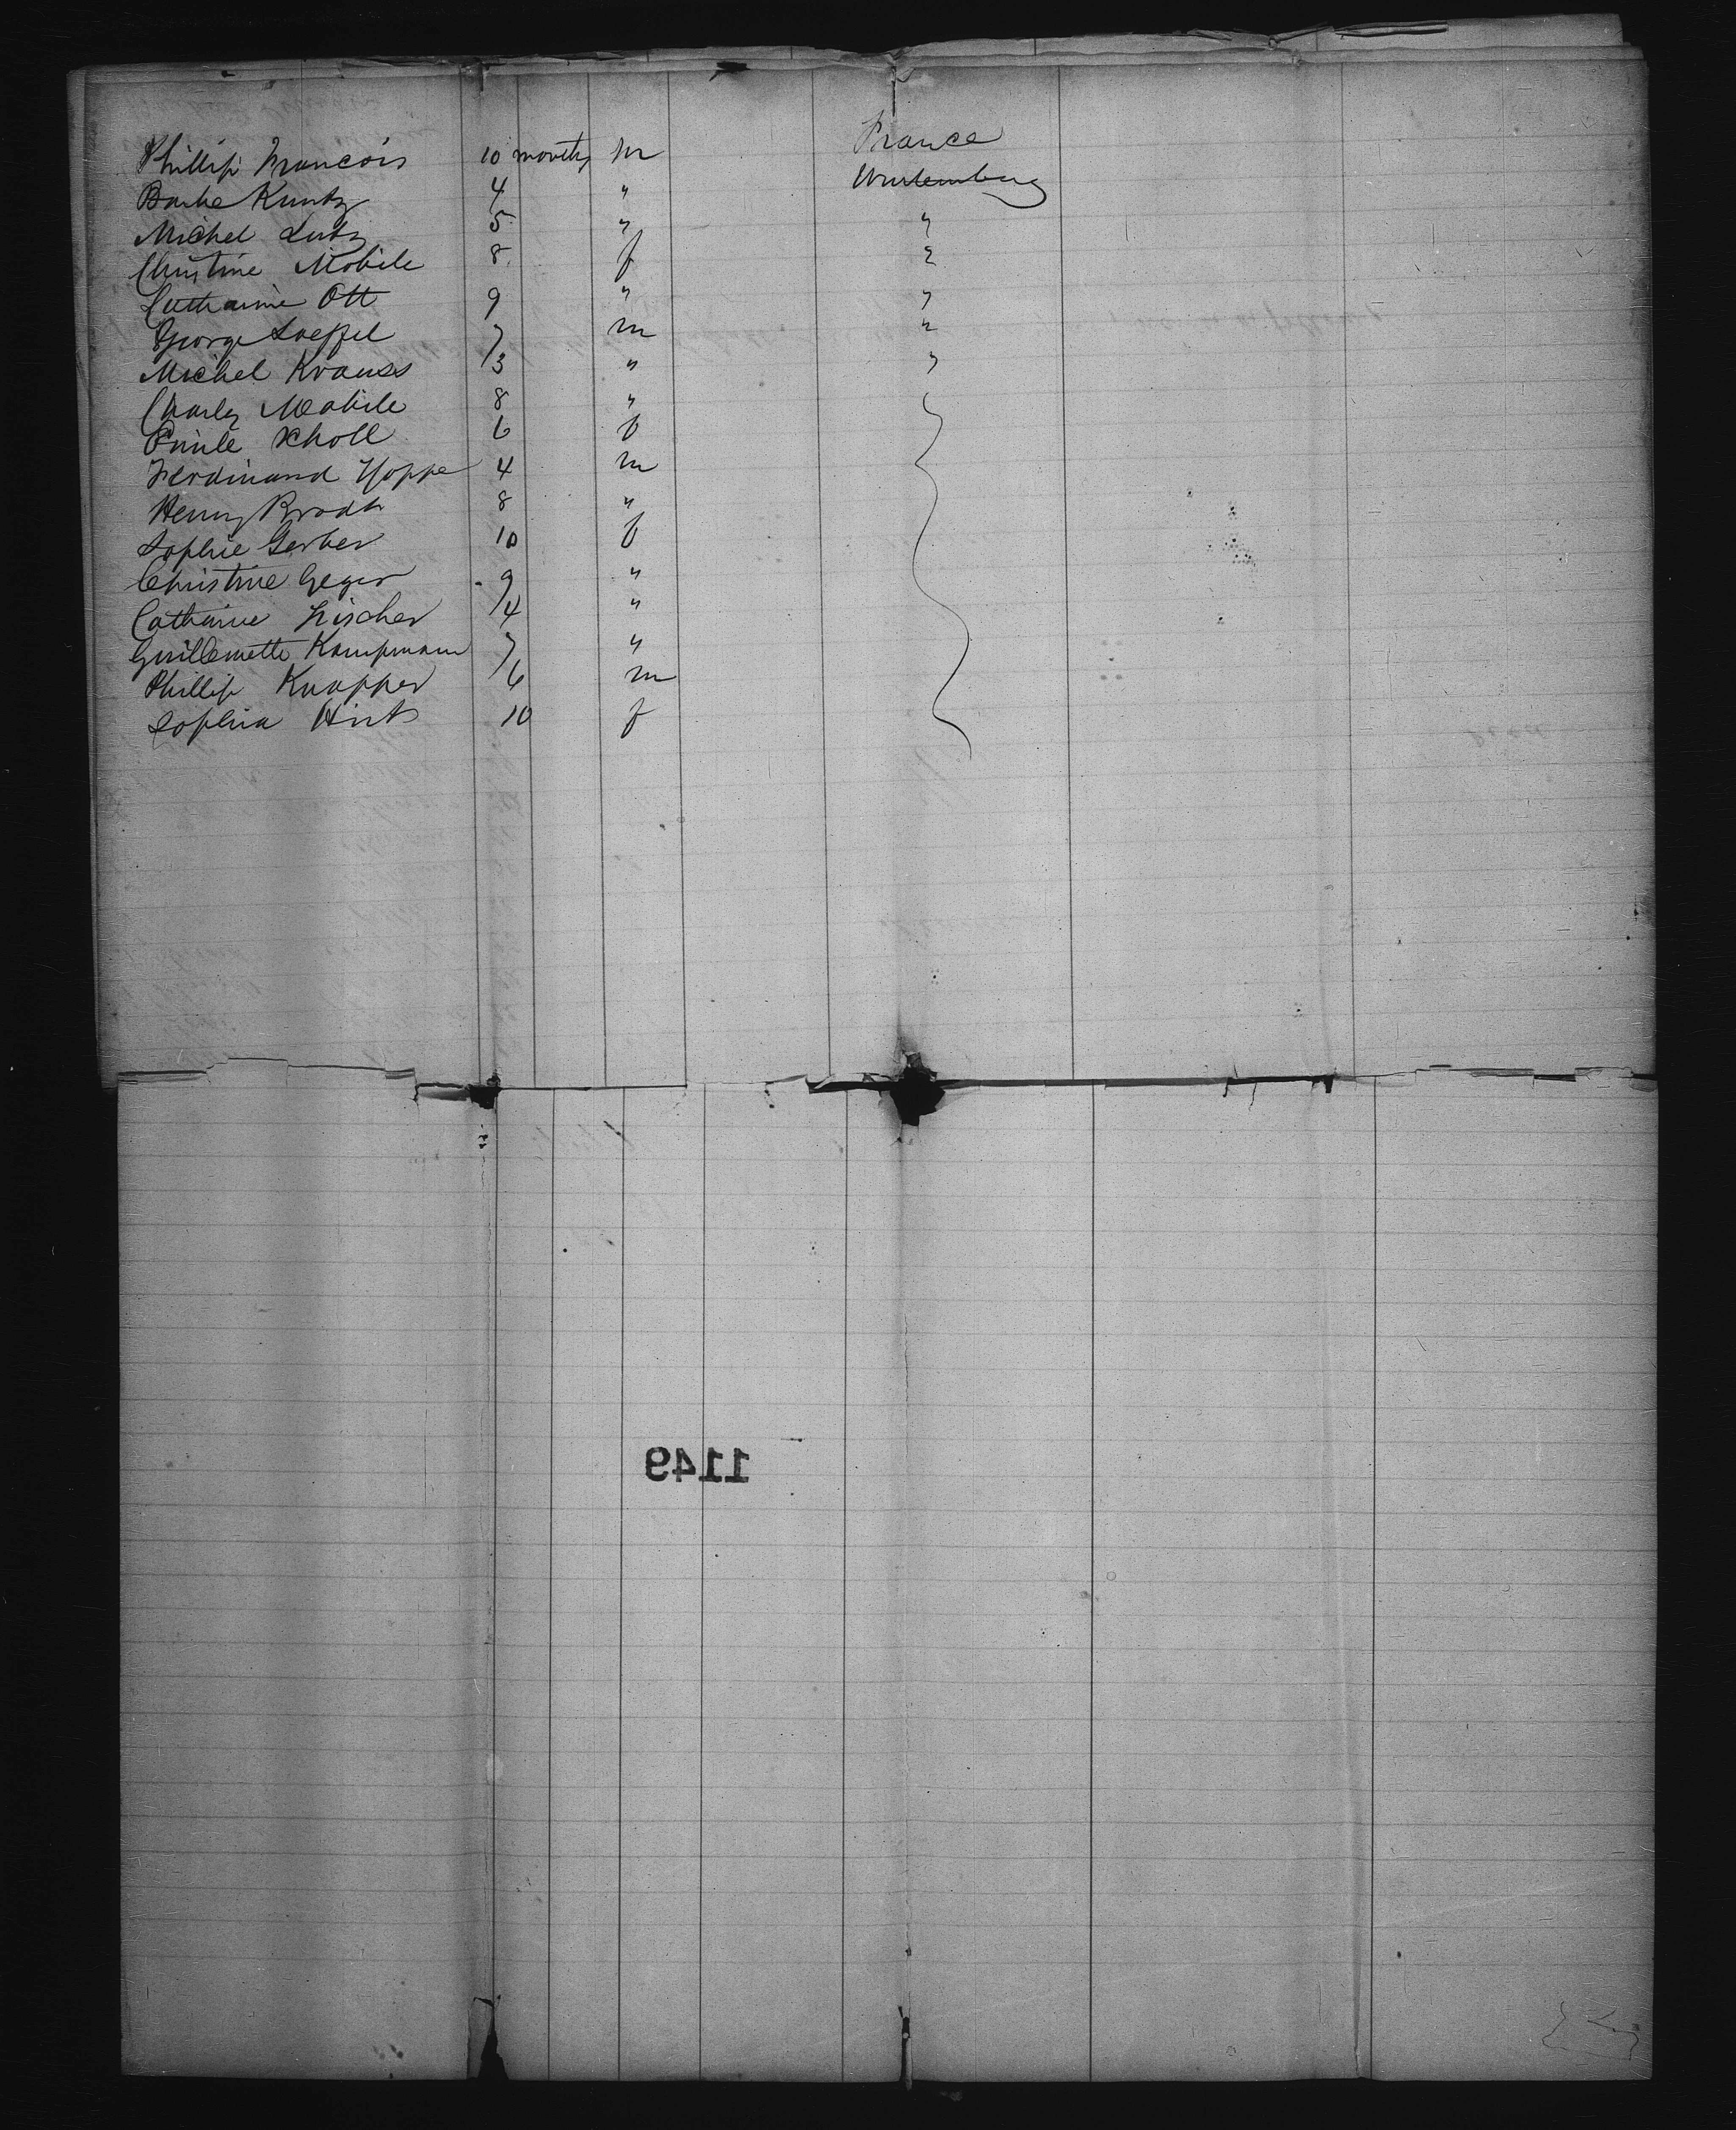 Phillip Francois 10 months m France
Barbe Kuntz 4 " Wurtemberg
Michel Lutz 5 " "
Christine Mobile 8 f "
Catharine Ott 9 " "
George Loeffel 7 m "
Michel Krauss 3 " "
Charles Mobile 8 "
Emile Scholl 6 f
Ferdinand Hoppe 4 m
Henry Brodt 8 "
Sophie Gerber 10 f
Christine Geger 9 "
Catharine Fischer 4 "
Guillemette Kampmann 7 "
Phillip Knapper 6 m
Sophia Hirt 10 f
1149